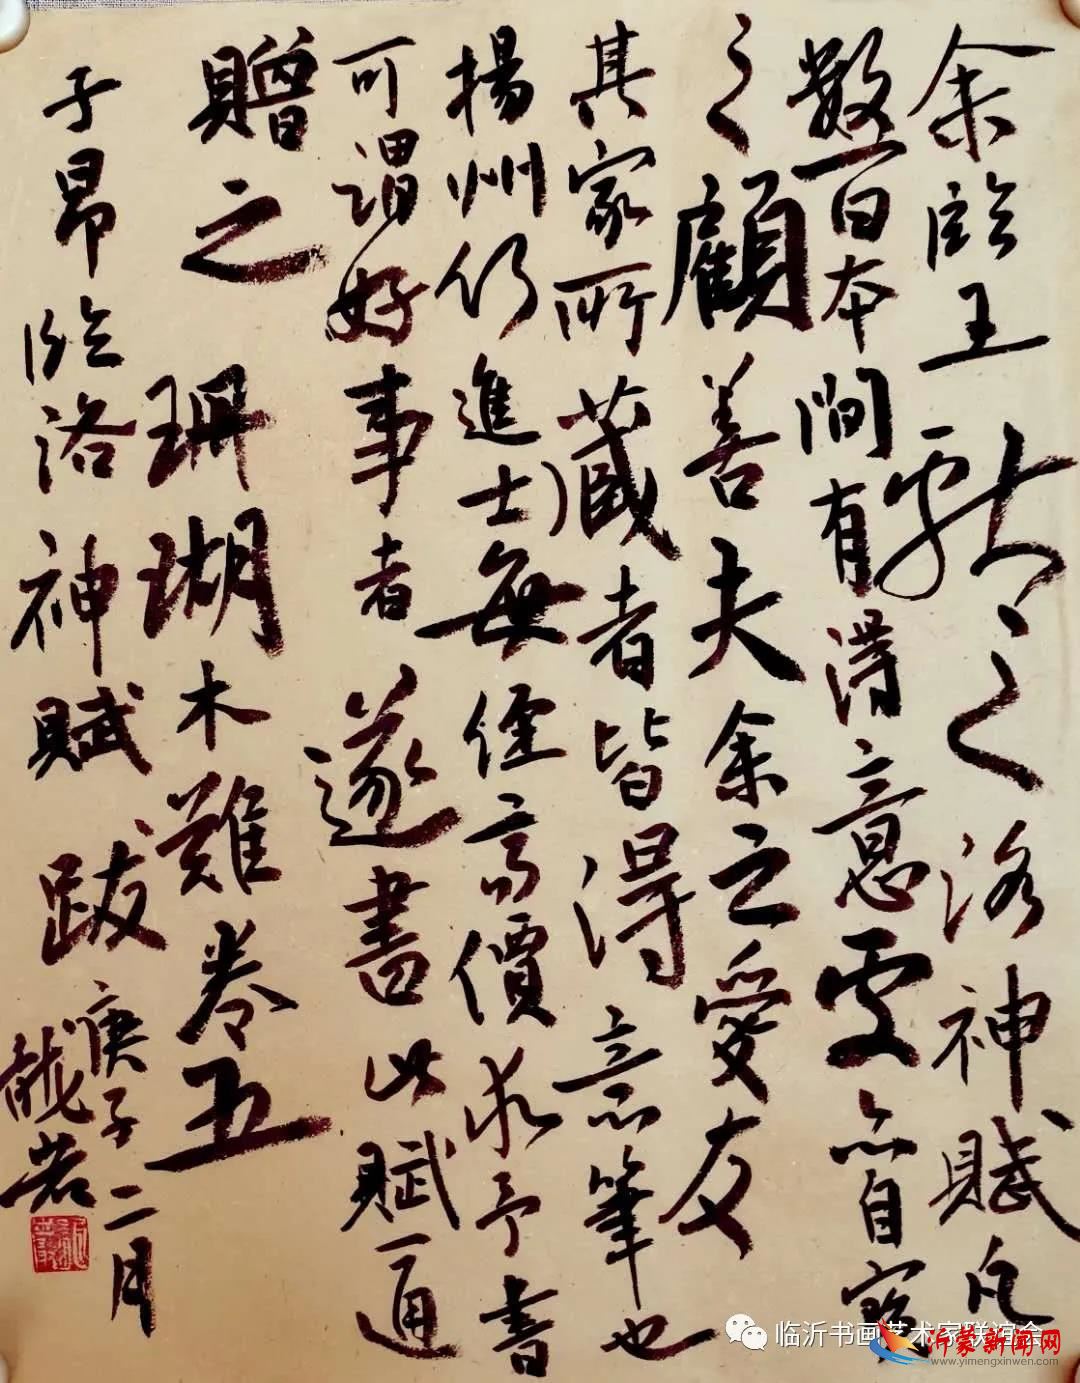 余临王献之洛神賦凡
數百本間有得意處亦自寶
之顧善夫余之愛友
其家所藏者皆得意筆也
揚州行進士每經高價求予書
可謂好事者遂書此賦一通
贈之 珊瑚木難卷五
子昂临洛神賦跋 庚子二月
临沂书画艺术家联谊会
沂蒙新闻网
www.yimengxinwen.com